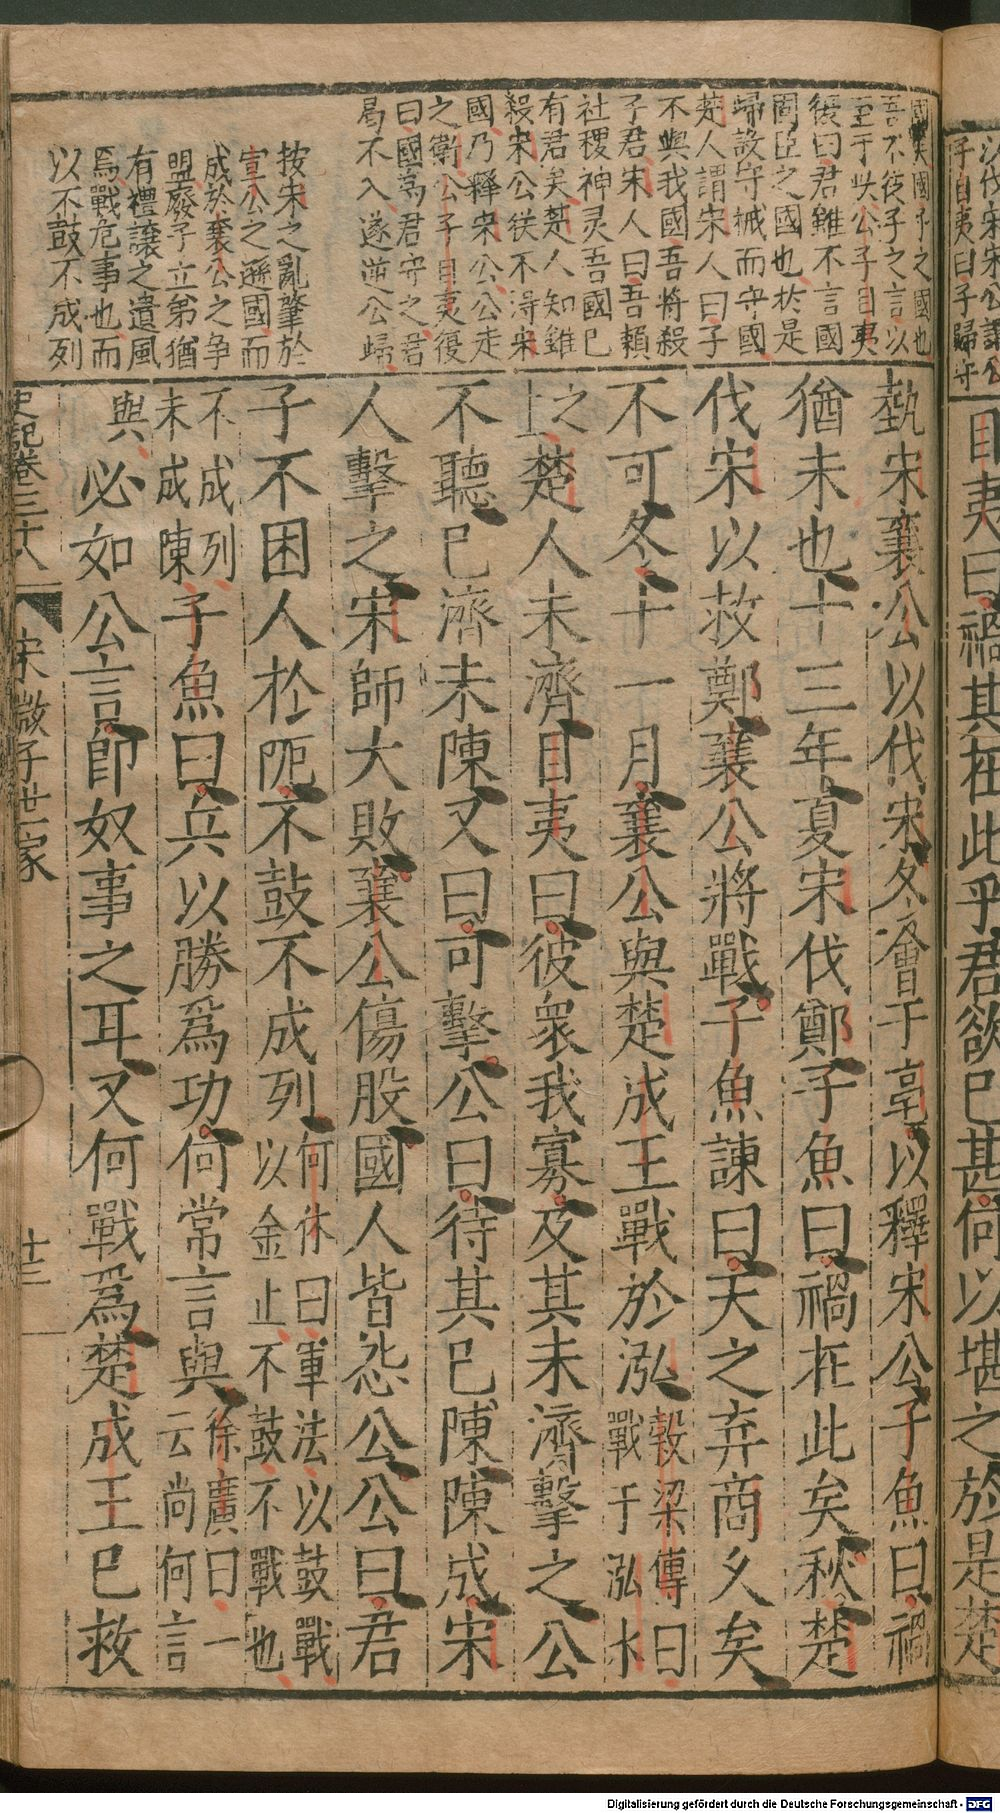 以伐宋宋公謂公
子目夷曰子歸守
目夷曰禍其在此乎君欲已甚何以堪之於是楚
國矣國子之國也
吾不從子之言以
至于此公子目夷
復曰君雖不言國
固臣之國也於是
歸設守械而守國
楚人謂宋人曰子
不與我國吾將殺
子君宋人曰吾賴
社稷神灵吾國已
有君矣楚人知雖
殺宋公犹不淂宋
國乃釋宋公公走
之衛公子目夷復
曰國爲君守之君
曷不入遂逆公歸
按宋之亂肇於
宣公之遜國而
成於襄公之争
盟廢子立弟猶
有禮讓之遺風
焉戰危事也而
以不鼓不成列
執宋襄公以伐宋冬會于亳以釋宋公子魚曰禍
猶未也十三年夏宋伐鄭子魚曰禍在此矣秋楚
伐宋以救鄭襄公將戰子魚諫曰天之弃商久矣
不可冬十一月襄公與楚成王戰於泓
榖梁傳曰
戰于泓水
之
上
楚人未濟目夷曰彼衆我寡及其未濟擊之公
不聽已濟未陳又曰可擊公曰待其已陳陳成宋
人擊之宋師大敗襄公傷股國人皆怨公公曰君
子不困人於阨不鼓不成列
何休曰軍法以鼓戰
以金止不鼓不戰也
不成列
未成陳
子魚曰兵以勝爲功何常言與
徐廣曰一
云尚何言
與
必如公言即奴事之耳又何戰爲楚成王已救
史記卷三十八
宋微子世家
廿三
Digitalisierung gefördert durch die Deutsche Forschungsgemeinschaft - DFG